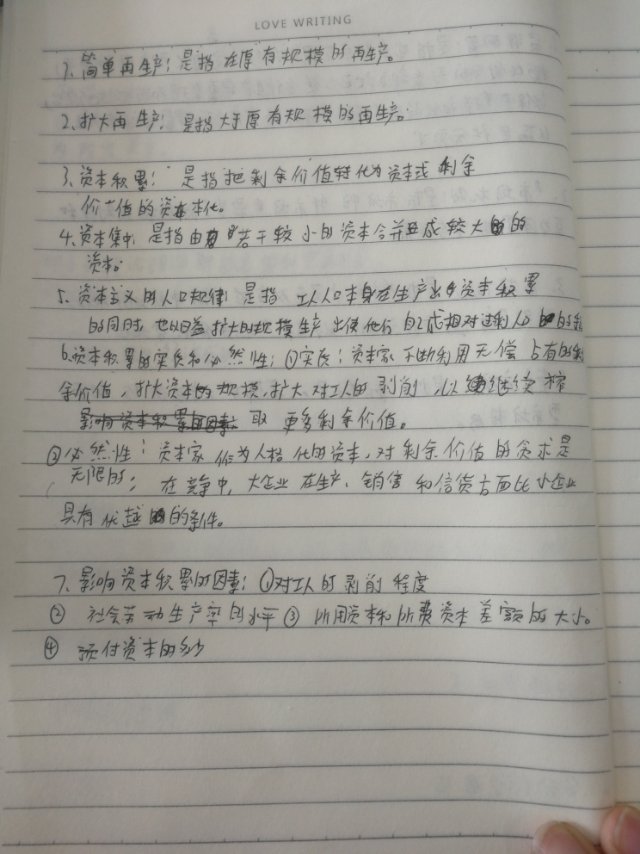 LOVE WRITING
1、简单再生产：是指在原有规模的再生产。
2、扩大再生产：是指大于原有规模的再生产。
3、资本积累：是指把剩余价值转化为资本或剩余
价值的资本化。
4、资本集中：是指由若干较小的资本合并成较大的
资本。
5、资本主义的人口规律：是指工人人口本身在生产出资本积累
的同时，也以日益扩大的规模生产出使他们自己成相对过剩人口的
6、资本积累的实质和必然性：①实质：资本家不断利用无偿占有的剩
余价值，扩大资本的规模，扩大对工人的剥削，以继续榨
影响资本积累的因素：取更多剩余价值。
②必然性：资本家作为人格化的资本，对剩余价值的贪求是
无限的；在竞争中，大企业在生产、销售和信贷方面比小企业
具有优越的条件。
7、影响资本积累的因素：①对工人的剥削程度
② 社会劳动生产率的水平③ 所用资本和所费资本差额的大小。
④ 预付资本的多少